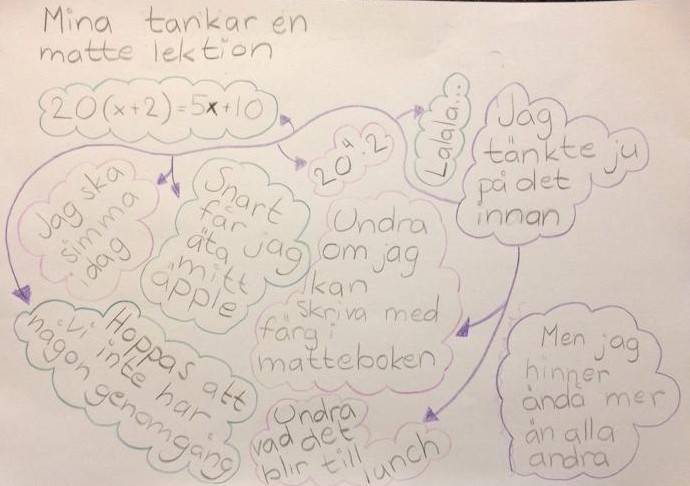 Mina tankar en
matte lektion
20(x+2)=5x+10
20⁹:2
Lalala...
Jag
tänkte ju
på det
innan
Jag ska
simma
idag
Snart
får jag
äta
mitt
äpple
Undra
om jag
kan
skriva med
färg i
matteboken
Hoppas att
vi inte har
någon genomgång
Undra
vad det
blir till
lunch
Men jag
hinner
ändå mer
än alla
andra